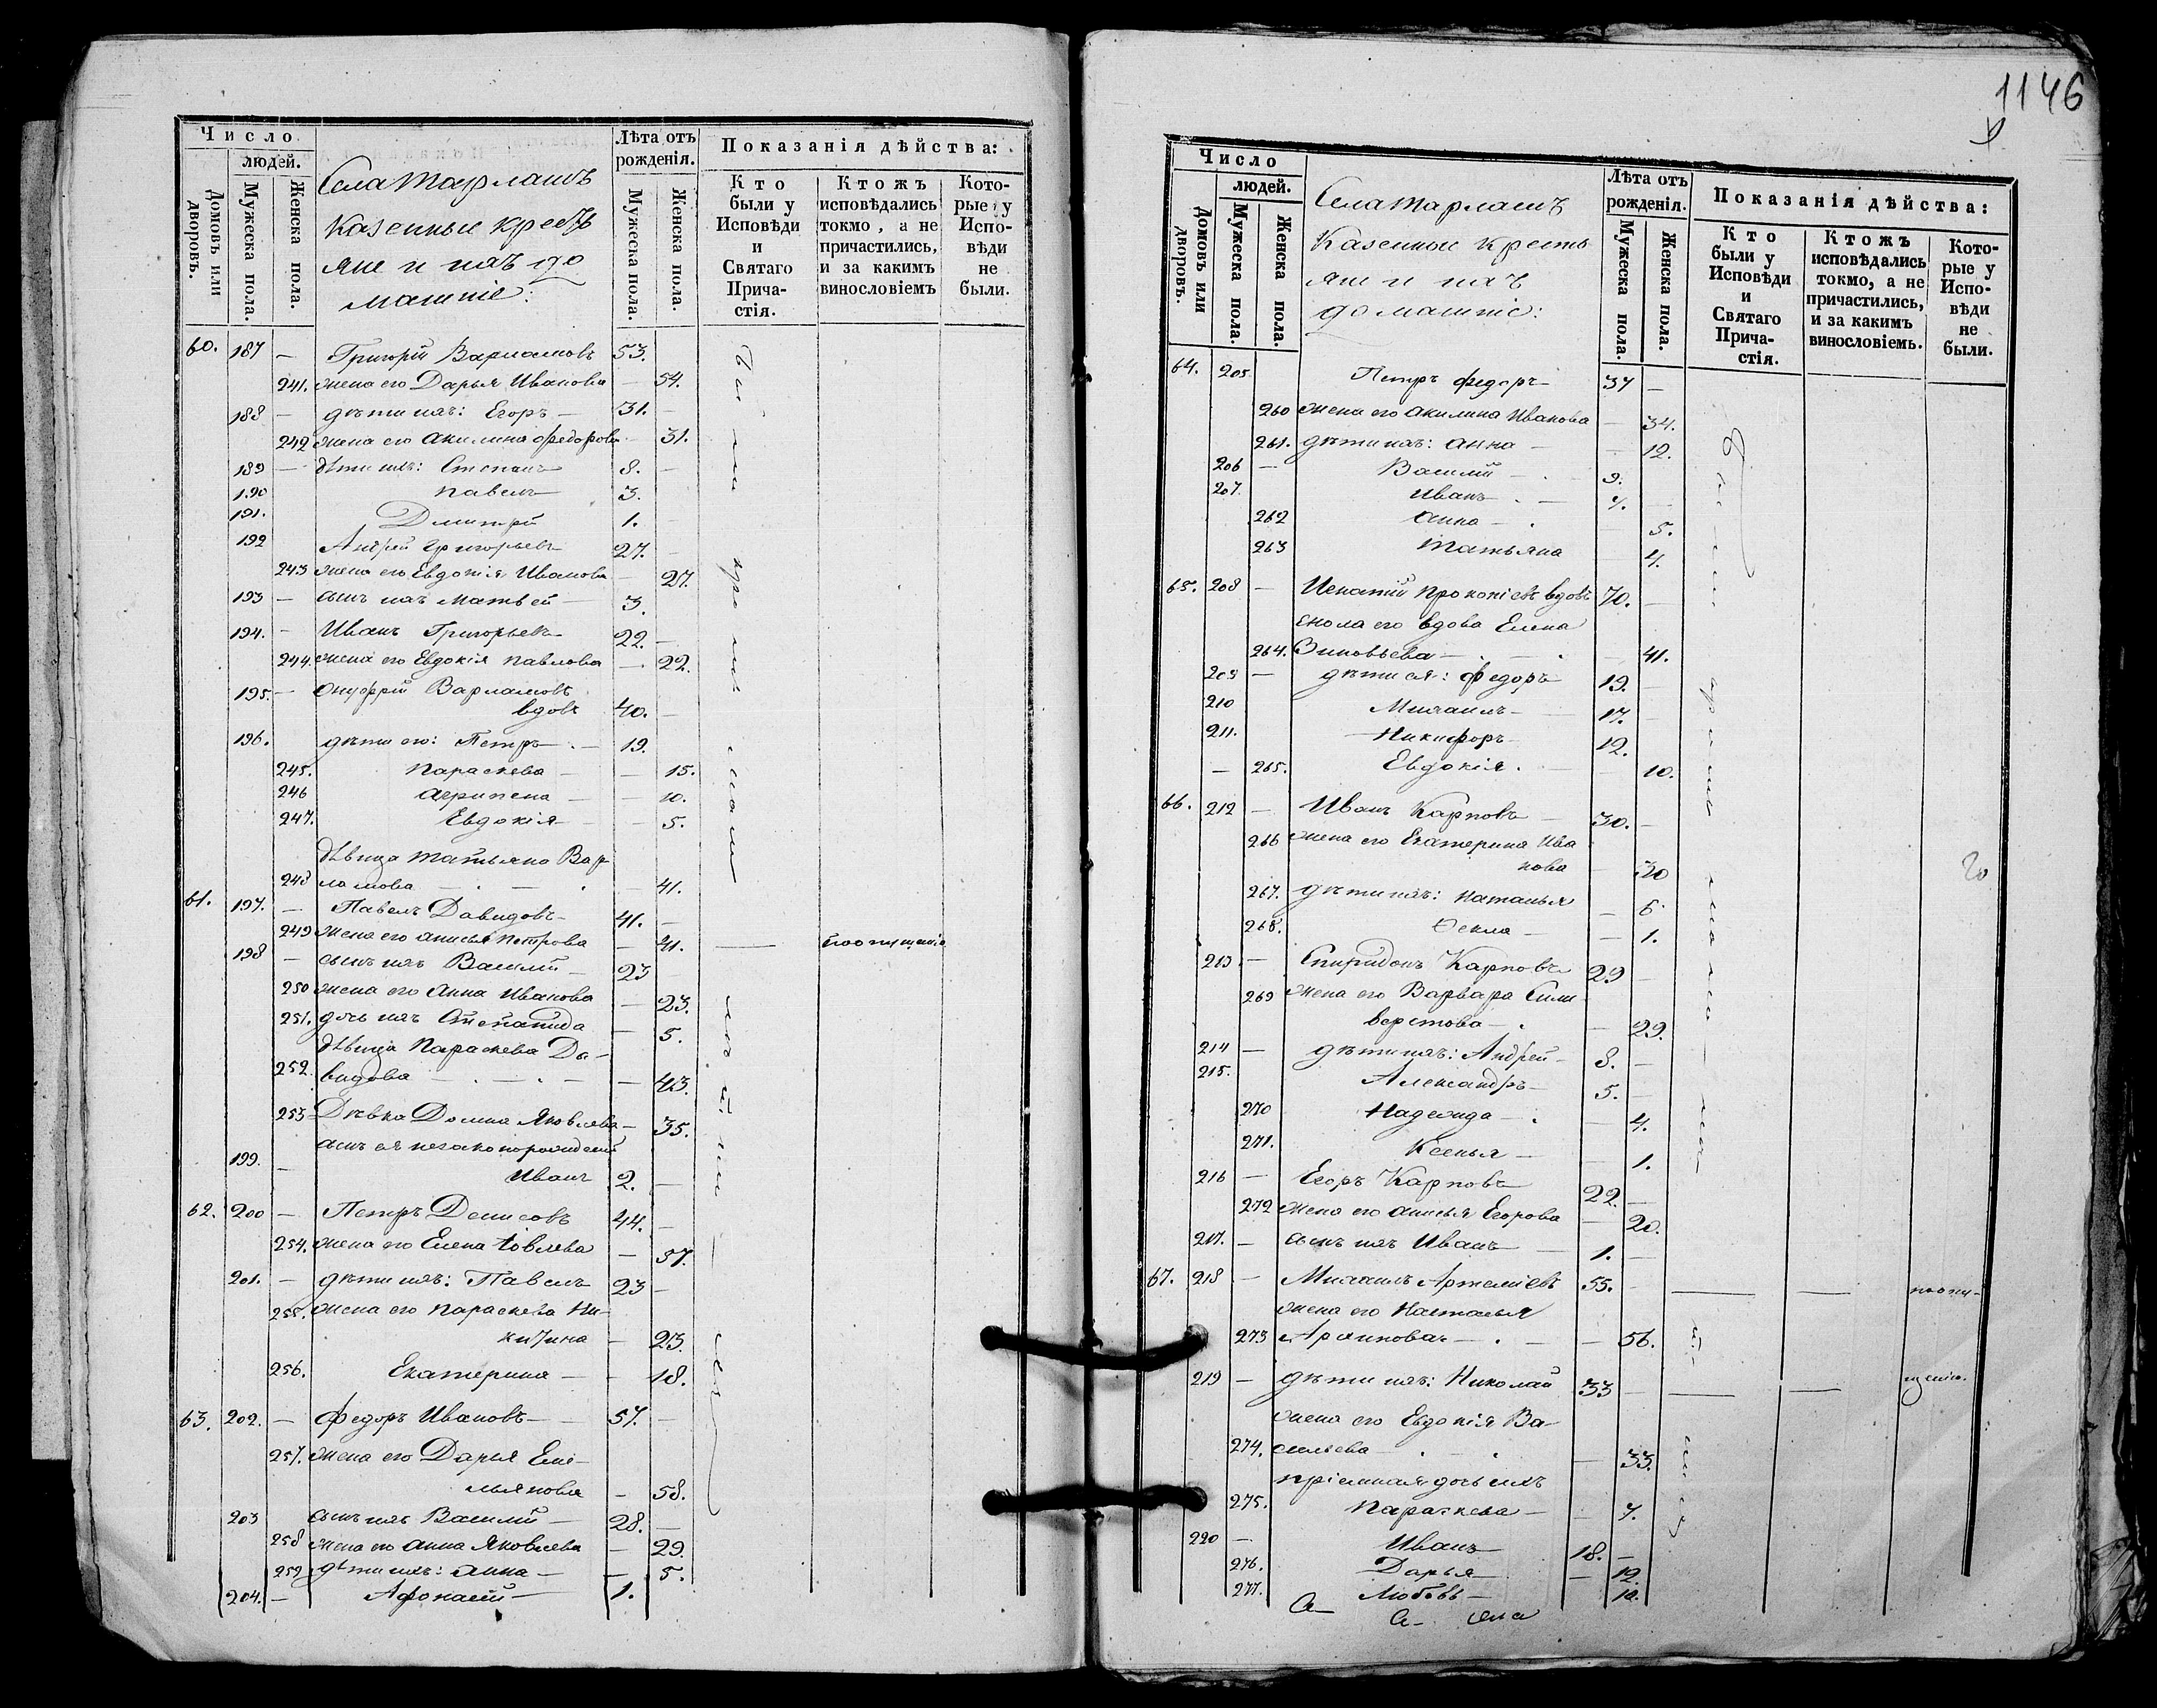 Число
людей.
Домовъ или дворовъ.
Мужеска пола.
Женска пола.
Села Тарлашъ
казенные кресть
яне и ихъ до
машніе:
Лѣта отъ рожденія.
Мужеска пола.
Женска пола.
Показанія дѣйства:
Кто были у Исповѣди и Святаго Прича-стія.
Ктожъ исповѣдались токмо, а не причастились, и за какимъ винословіемъ
Кото-рые у Испо-вѣди не были.
60. 187 — Григорій Варламовъ 53.
241. жена его Дарья Иванова — 54.
188 — дѣти ихъ: Егоръ — 31. —
242 жена его Акилина Федорова — 31.
189 — дѣти ихъ: Степанъ 8. —
190 Павелъ 3.
191. Дмитрій 1. —
192 Андрей Григорьевъ 27. —
243 жена его Евдокія Иванова — 27.
193 — сынъ ихъ Матвей — 3.
194. — Иванъ Григорьевъ 22. —
244. жена его Евдокія Павлова — 22.
195. — Онуфрій Варламовъ
вдовъ 40. —
196. дѣти его: Петръ — 19.
245. Параскева — — 15.
246 Агрипена — — 10.
247. Евдокія — — 5.
дѣвица Татьяна Вар
248 ламова — — 41.
61. 197. — Павелъ Давидовъ 41. —
249 жена его Анисья Петрова — 41. — по опущенію
198 — сынъ ихъ Василій — 23
250 жена его Анна Иванова — 23.
251. дочь ихъ Степанида — 5.
дѣвица Параскева Да-
252. видова — — — 43.
253 Дѣвка Домна Яковлева — 35.
сынъ ея незаконорожденый
199. — Иванъ 2. —
62. 200 — Петръ Денисовъ 44. —
254. жена его Елена Іовлева — 37.
201. — дѣти ихъ: Павелъ 23 —
255. жена его Параскева Ни-
китина — 23.
256. Екатерина — — 18.
63. 202. — Федоръ Ивановъ — 57. —
257. жена его Дарья Еме-
льянова — 58.
203 сынъ ихъ Василій — 28. —
258 жена его Анна Яковлева — 29.
259 дѣти ихъ: Анна — — 5.
204. — Афонасій — 1.
1146
Число
людей.
Домовъ или дворовъ.
Мужеска пола.
Женска пола.
Села Тарлашъ
Казенные кресть
яне и ихъ
домашніе:
Лѣта отъ рожденія.
Мужеска пола.
Женска пола.
Показанія дѣйства:
Кто были у Исповѣди и Святаго Прича-стія.
Ктожъ исповѣдались токмо, а не причастились, и за какимъ винословіемъ.
Кото-рые у Испо-вѣди не были.
64. 205. Петръ Федоръ — 37 —
260 жена его Акилина Иванова — 34.
261. дѣти ихъ: Анна — — 12.
206 — Василій — 9.
207. Иванъ — 7. —
262 Анна — — 5.
263 Татьяна — 4.
65. 208 — Игнатій Прокопіевъ вдовъ 70. —
сноха его вдова Елена
264. Зиновьева — — 41.
209 — дѣти ея: Федоръ 19. —
210 Михаилъ — 17. —
211. Никифоръ 12.
— 265. Евдокія. — 10.
66. 212 — Иванъ Карповъ — 30. —
266 жена его Екатерина Ива
нова — 30
267. дѣти ихъ: Наталья — 6.
268. Фекла — — 1.
213. — Спиридонъ Карповъ 29 —
269 жена его Варвара Сили-
верстова — — 29.
214 — дѣти ихъ: Андрей — 8. —
215. Александръ — 5. —
270 Надежда — — 4.
271. Ксенья — — 1.
216 — Егоръ Карповъ 22. —
272 жена его Анисья Егорова — 20.
217. — сынъ ихъ Иванъ — 1. —
67. 218 — Михаилъ Артеміевъ 55. — — — по опу-
жена его Наталья
273 — 56.
219 — дѣти ихъ: Николай 33 — — — щенію.
жена его Евдокія Ва-
274. сильева — — 33.
пріемная дочь ихъ
275. Параскева — — 7.
220 — Иванъ — 18. —
276. Дарья — — 12.
277. Любовь — 10.